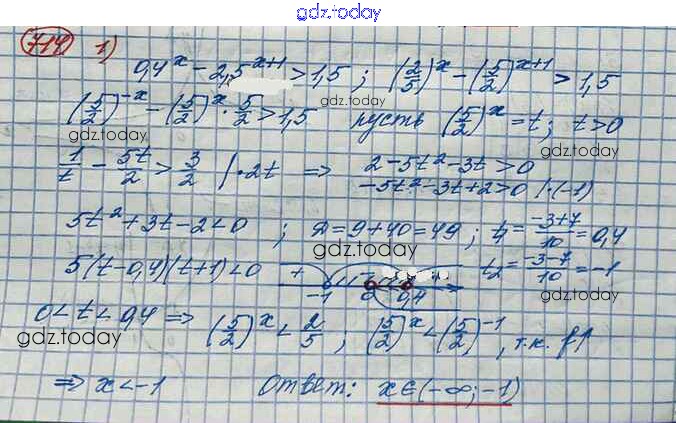 gdz.today
714 1)
0,4^x - 2,5^{x+1} > 1,5 ; (2/5)^x - (5/2)^{x+1} > 1,5
gdz.today
(5/2)^{-x} - (5/2)^x · 5/2 > 1,5 пусть (5/2)^x = t; t > 0
gdz.today
gdz.today
1/t - 5t/2 > 3/2 | · 2t ⇒ 2 - 5t² - 3t > 0
-5t² - 3t + 2 > 0 | · (-1)
5t² + 3t - 2 < 0 ; D = 9 + 40 = 49 ; t₁ = (-3+7)/10 = 0,4
gdz.today
5(t-0,4)(t+1) < 0 + -1 0 0,4 t₂ = (-3-7)/10 = -1
gdz.today
0 < t < 0,4 ⇒ (5/2)^x < 2/5 ; (5/2)^x < (5/2)^{-1}, т.к. f↑
gdz.today
gdz.today
⇒ x < -1 Ответ: x ∈ (-∞; -1)